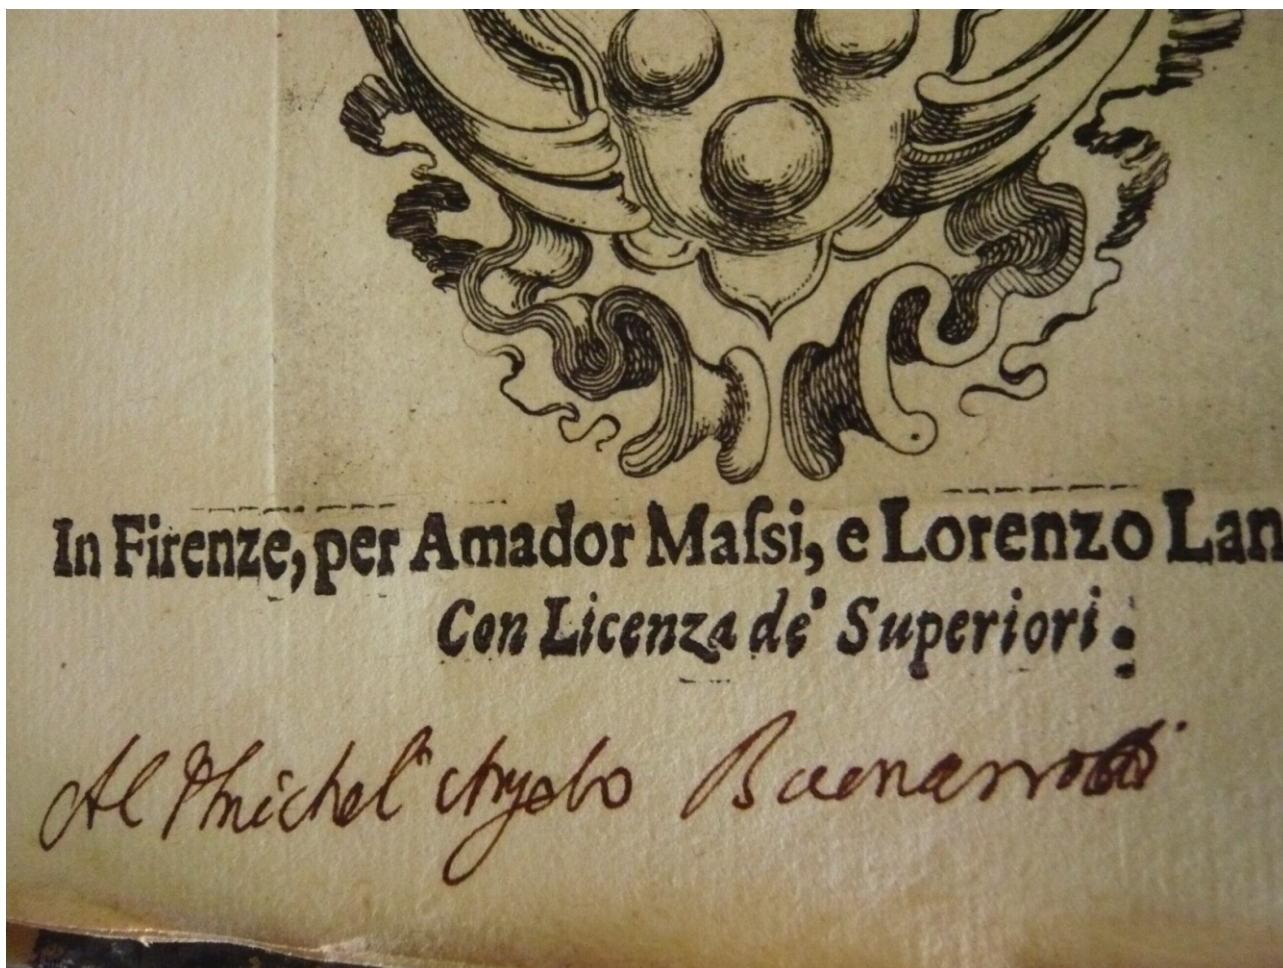 In Firenze, per Amador Maſsi, e Lorenzo Lan
Con Licenza de' Superiori:
Al Michel' Angelo Buonarroti